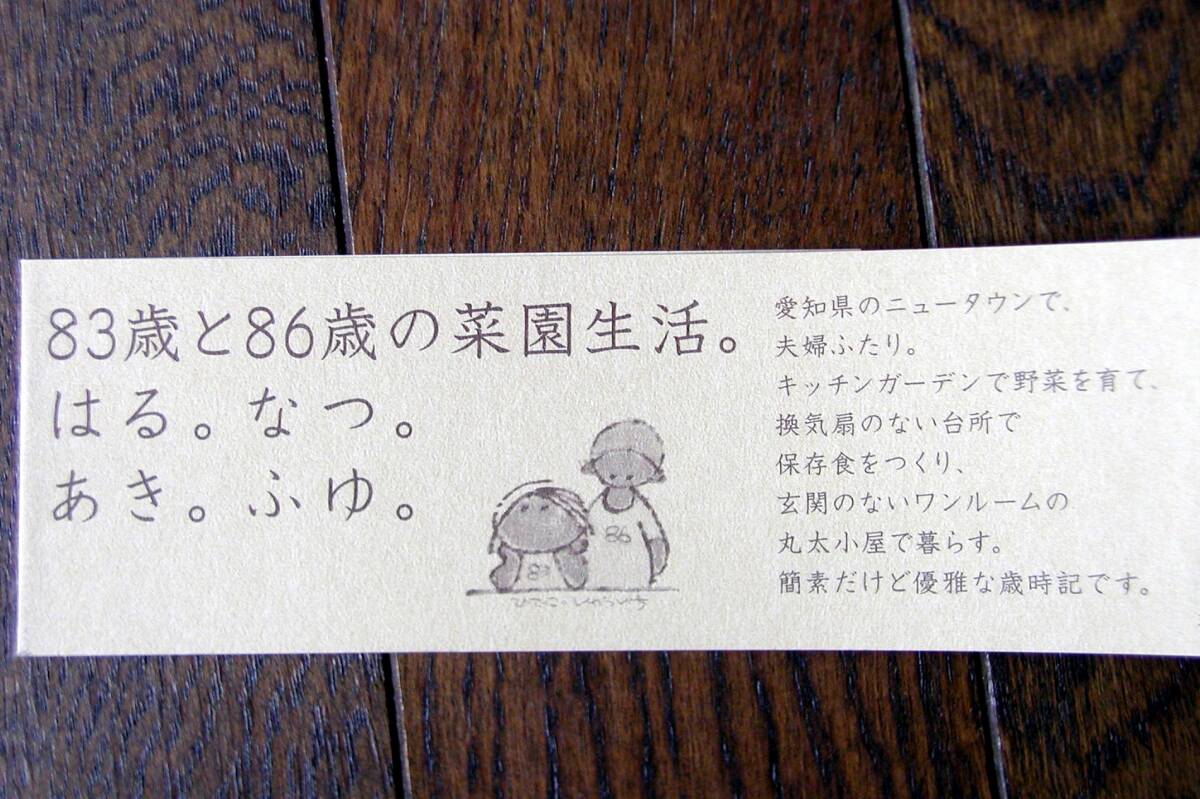 83歳と86歳の菜園生活。
はる。なつ。
あき。ふゆ。
86
83
愛知県のニュータウンで、
夫婦ふたり。
キッチンガーデンで野菜を育て、
換気扇のない台所で
保存食をつくり、
玄関のないワンルームの
丸太小屋で暮らす。
簡素だけど優雅な歳時記です。